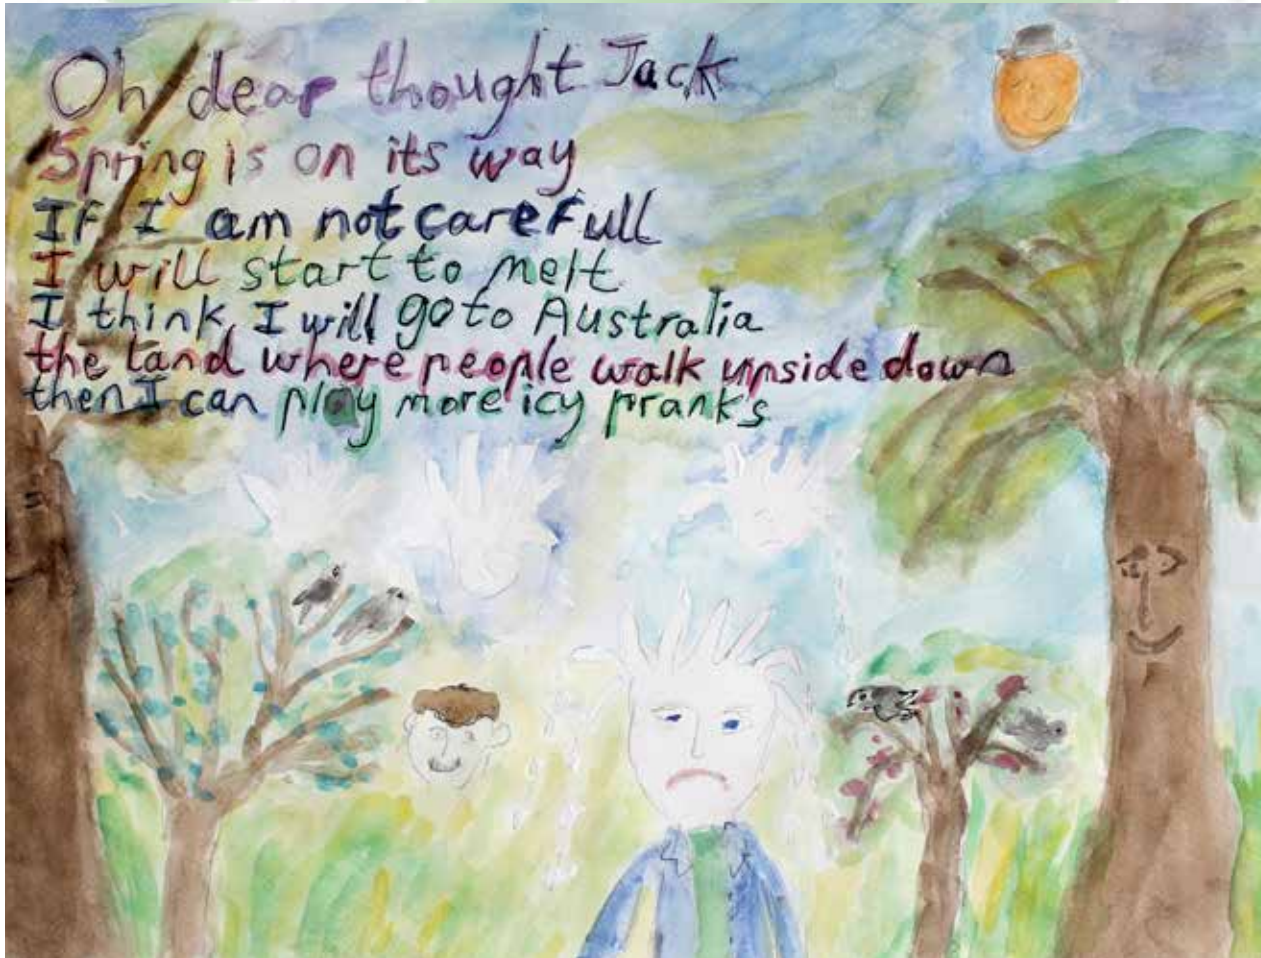 Oh dear thought Jack
Spring is on its way
If I am not carefull
I will start to melt
I think I will go to Australia
the land where people walk unpside down
then I can play more icy pranks